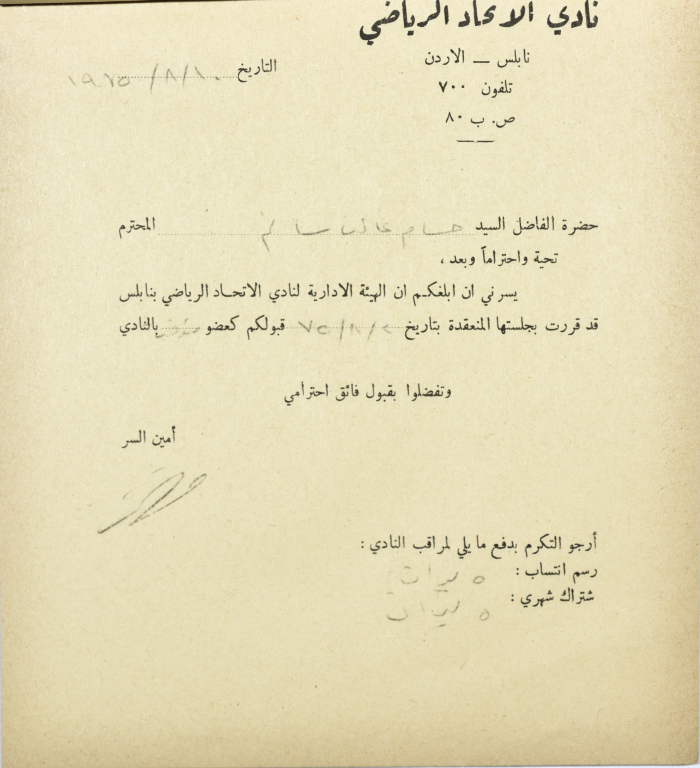 نادي الاتحاد الرياضي
نابلس — الاردن
تلفون ٧٠٠
ص. ب ٨٠
التاريخ ١٩٧٥/٨/١٠
حضرة الفاضل السيد حسام سالم المحترم
تحية واحتراماً وبعد ،
يسرني ان ابلغكم ان الهيئة الادارية لنادي الاتحاد الرياضي بنابلس
قد قررت بجلستها المنعقدة بتاريخ ٧٥/٨/٢ قبولكم كعضو بالنادي
وتفضلوا بقبول فائق احترامي
أمين السر
أرجو التكرم بدفع ما يلي لمراقب النادي :
رسم انتساب : ٥ ليرات
شتراك شهري : ٥ ليرات